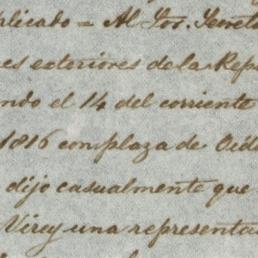 plicado = Al Sor. Secreta
es exteriores de la Rep
ndo el 14 del corriente
1816 con plaza de Oid
dijo casualmente que
Virey una representa